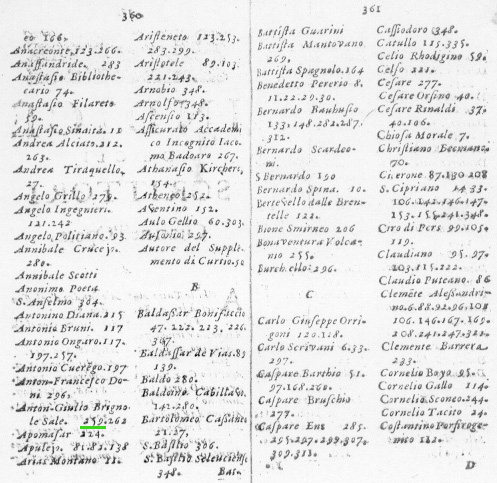 360
eo 166.
Anacreonte, 123.266.
Anassandride. 283
Anastasio Bibliothe-
cario 74.
Anastasio Filareto
59.
Anastasio Sinaita. 11
Andrea Alciato. 212.
263.
Andrea Tiraquello.
27.
Angelo Grillo 279.
Angelo Ingegneri.
121.242
Angelo Politiano. 93
Annibale Cruceio.
280.
Annibale Scotti
Anonimo Poeta
S. Anselmo 304.
Antonino Diana. 215
Antonio Bruni. 117
Antonio Ongaro. 117.
197.257.
Antonio Querengo. 197
Anton-Francesco Do-
ni 296.
Anton-Giulio Brigno
le Sale. 259.262
Apomasar 224.
Apulejo. 81.82.138
Arias Montano 11.
Aristeneto 123.253.
283.299.
Aristotele 89.103
221.243.
Arnobio 348.
Arnolfo 348.
Ascensio 113.
Assicurato Accademi
co Incognito Iaco
mo Badoaro 267.
Athanasio Kircheri
154.
Atheneo 252.
Aventino 152.
Aulo Gellio 60.303.
Ausonio 297.
Autore del Supple-
mento di Curtio. 50
B
Baldassar Bonifaccio
47.222.213.226.
307.
Baldassar de Vias. 83
139.
Baldo 280.
Baldoino Cabilliavo
142.280.
Bartolomeo Cassaneo
21.37.
S. Basilio 306.
S. Basilio Seleuciense
348. Bat-
361
Battista Guarini
Battista Mantovano
269.
Battista Spagnolo. 164
Benedetto Pererio 8.
11.22.29.30.
Bernardo Bauhusio
133.148.282.287.
312.
Bernardo Scardeo-
ni.
S Bernardo 150
Bernardo Spina. 10.
Bertesello dalle Bren-
telle 121.
Bione Smirneo 206
Bonaventura Volca-
nio 255.
Burchello 296.
C
Carlo Giuseppe Orri-
goni 120.128.
Carlo Scrivani 6.33.
297.
Gaspare Barthio 51.
97.168.260.
Caspare Bruschio
277.
Caspare Ens 285.
295.297.299.307.
309.311.
Cassiodoro 348.
Catullo 115.335.
Celio Rhodigino 59.
Celso 221.
Cesare 277.
Cesare Orsino 40.
Cesare Rinaldi 37.
40.106.
Chiosa Morale 7.
Christiano Becmano
70.
Cicerone 87.130 208
S. Cipriano 14.33.
106.142.146.147.
153.159.241.348.
Ciro di Pers 99.105.
119.
Claudiano 95.97.
103.115.222.
Claudio Puteano. 86
Clemẽte Alessandri-
no. 6.88.92.96.104
106.146.167.169.
208.241.247.321.
Clemente Barrera
233.
Cornelio Boyo 95.
Cornelio Gallo 114.
Cornelio Sconeo. 244.
Cornelio Tacito 24.
Costantino Porfiroge-
nito 111.
D